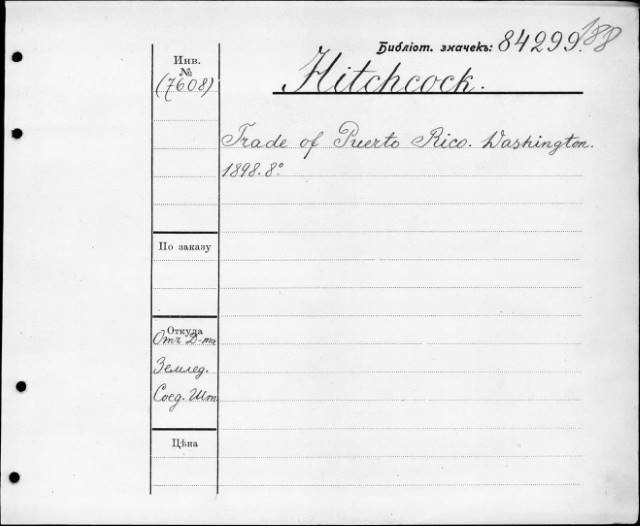 Библіот. значекъ: 84299.
188
Инв.
№
(7608)
Hitchcock.
Trade of Puerto Rico. Washington.
1898. 8°
По заказу
Откуда
Отъ Д-та
Землед.
Соед. Шт
Цѣна